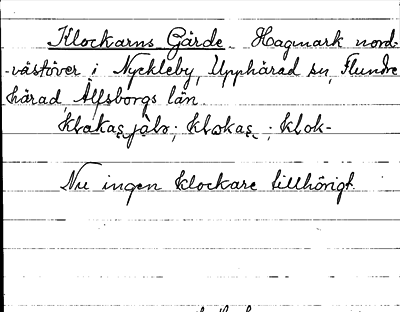 Klockarns Gärde. Hagmark nord-
-västöver i Nyckleby, Upphärad sn, Flundre
härad, Älfsborgs län
klokas jälə; klokas ; klok-
Nu ingen klockare tillhörigt.